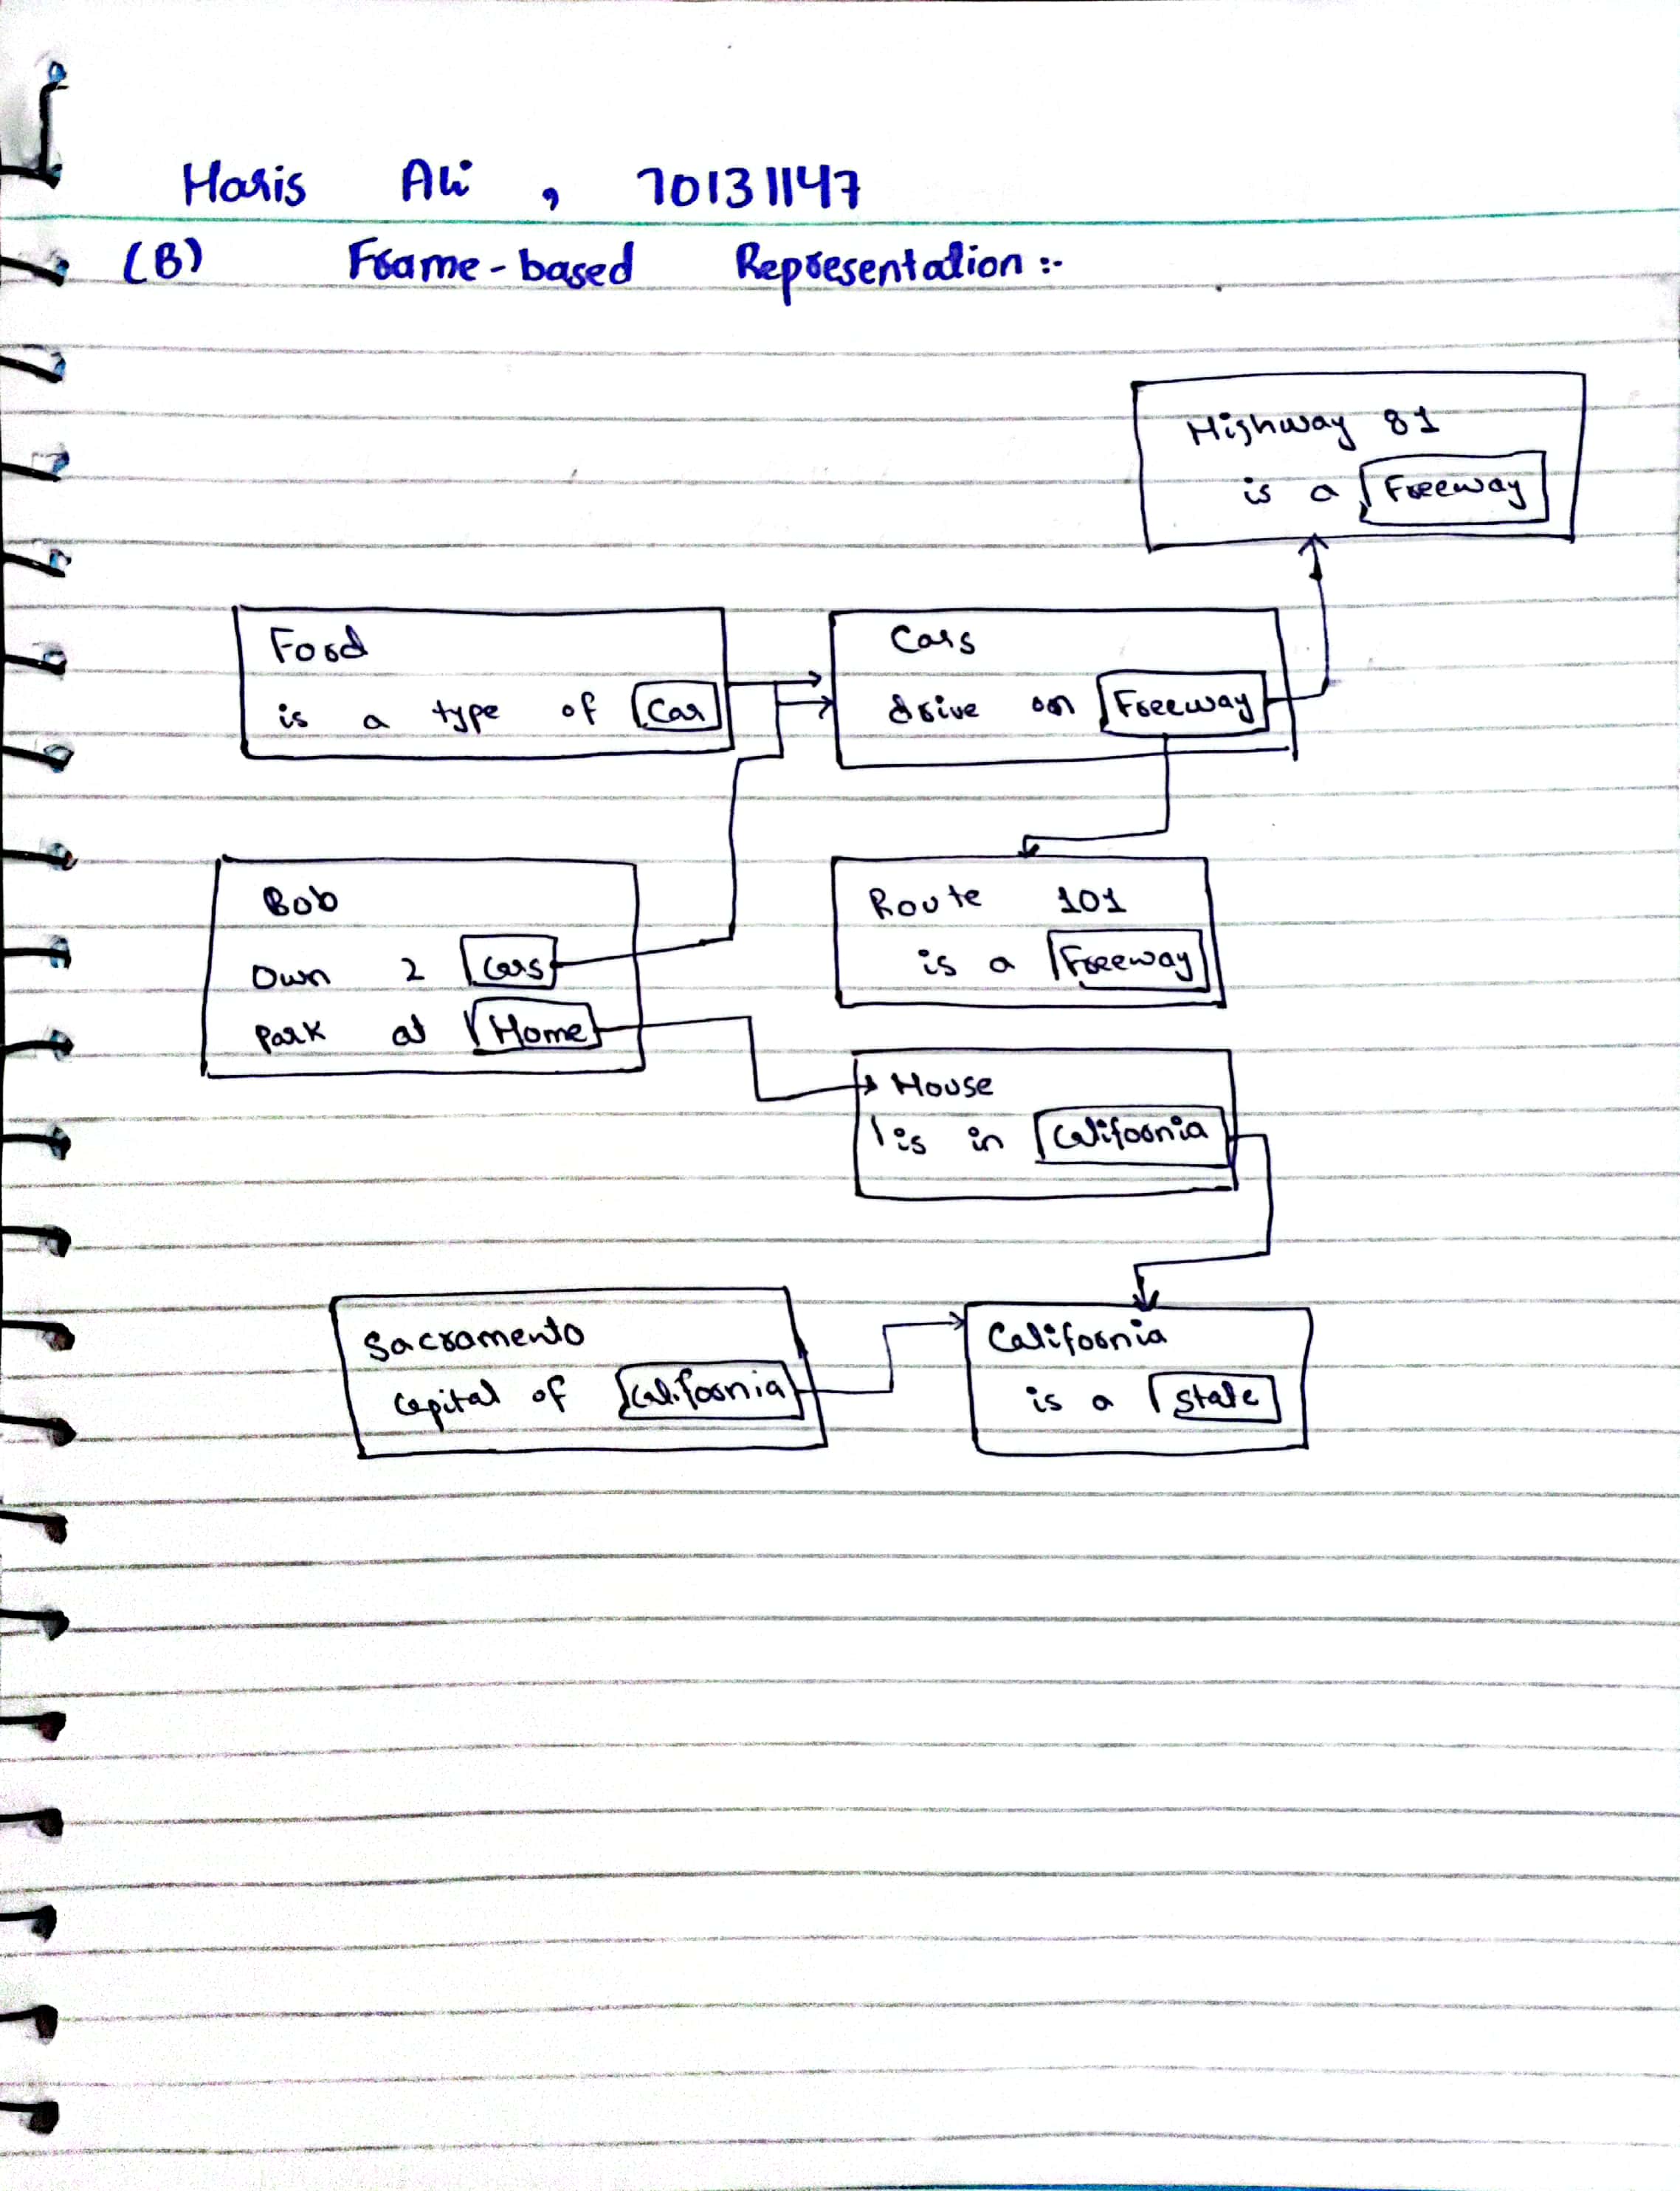 Haris Ali , 70131147
(B) Frame-based Representation :-
Highway 81
is a Freeway
Ford
is a type of Car
Cars
drive on Freeway
Bob
Own 2 Cars
Park at Home
Route 101
is a Freeway
House
is in California
Sacramento
Capital of California
California
is a State